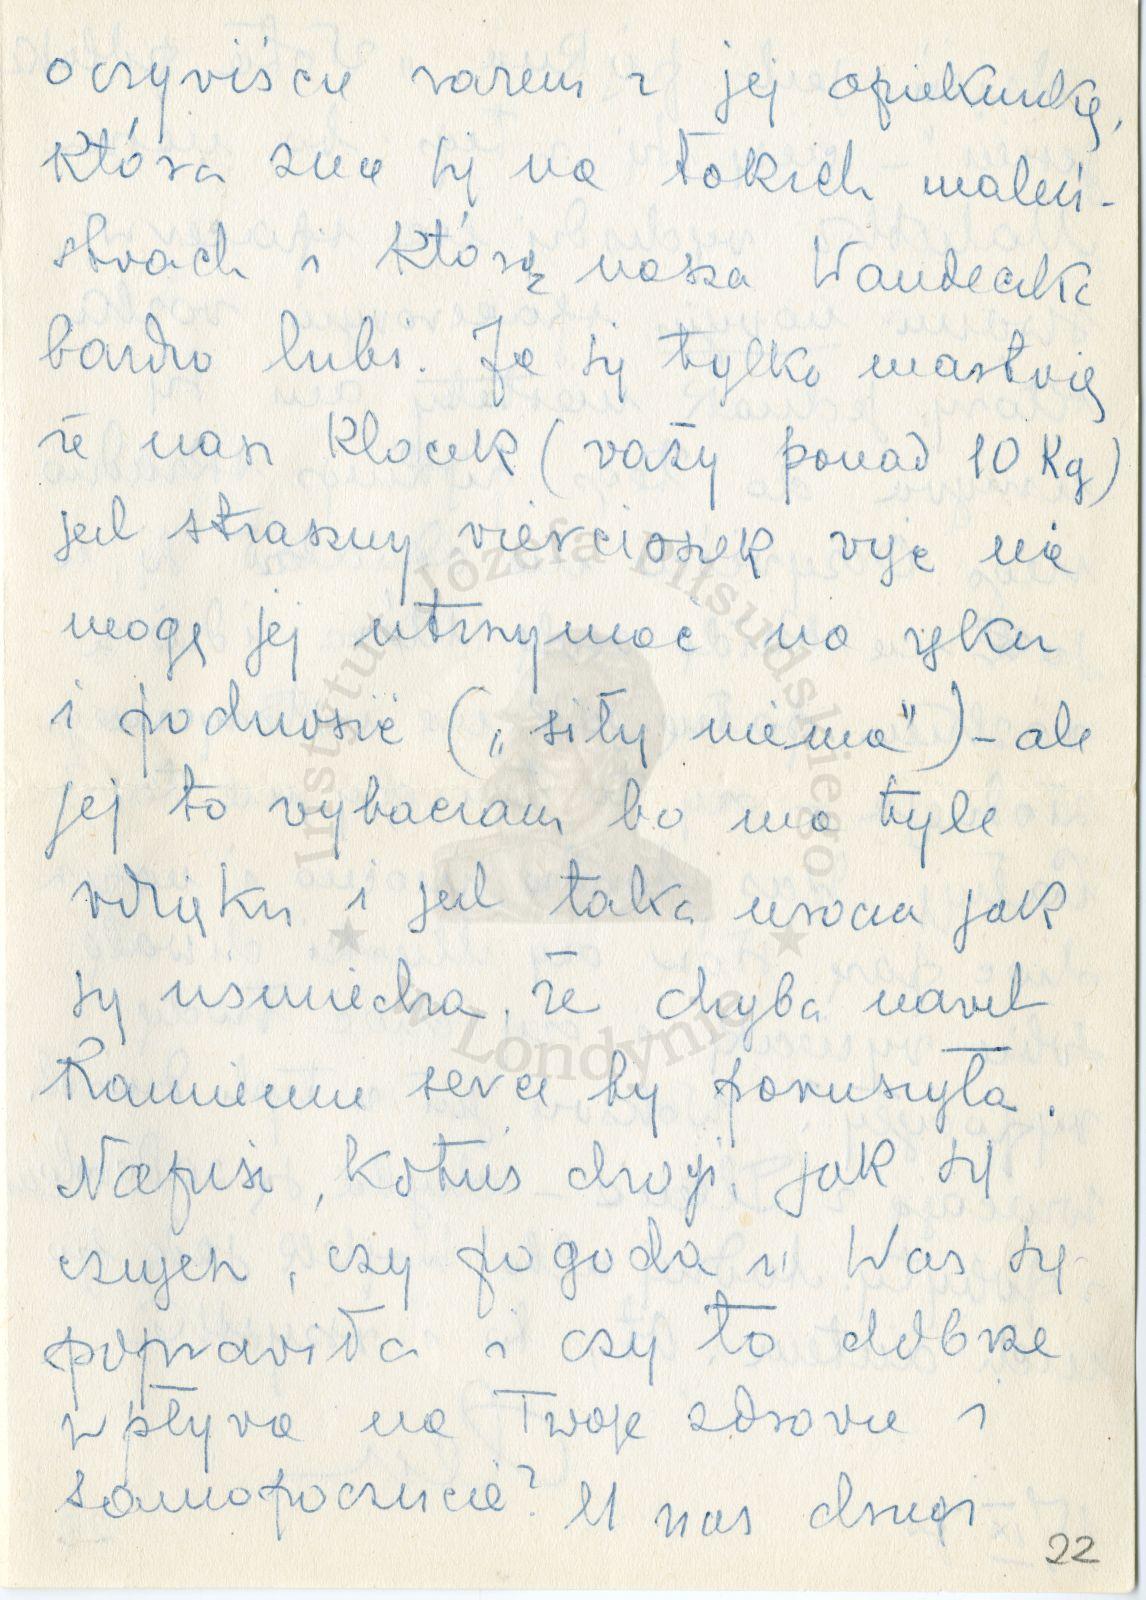 oczywiście razem z jej opiekunką,
która zna się na takich maleń-
stwach i którą nasza Wandeczka
bardzo lubi. Ja się tylko martwię
że nasz Klocek (waży ponad 10 Kg)
jest straszny wiercioszek więc nie
mogę jej utrzymać na ręku
i podnosić („siły niema") - ale
jej to wybaczam bo ma tyle
wdzięku i jest taka urocza jak
się uśmiecha, że chyba nawet
Kamienne serce by poruszyła.
Napisz, Kotuś drogi, jak się
czujesz, czy pogoda u Was się
poprawiła i czy to dobrze
wpływa na Twoje zdrowie i
samopoczucie? U nas drugi
22
Instytut Józefa Piłsudskiego
w Londynie